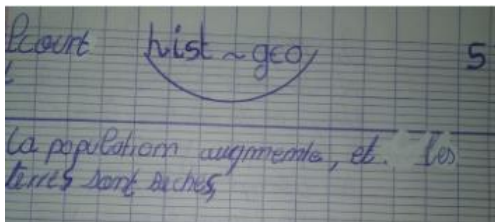 Lcourt hist ~ geo 5
la population augmente, et. les
terres sont riches,